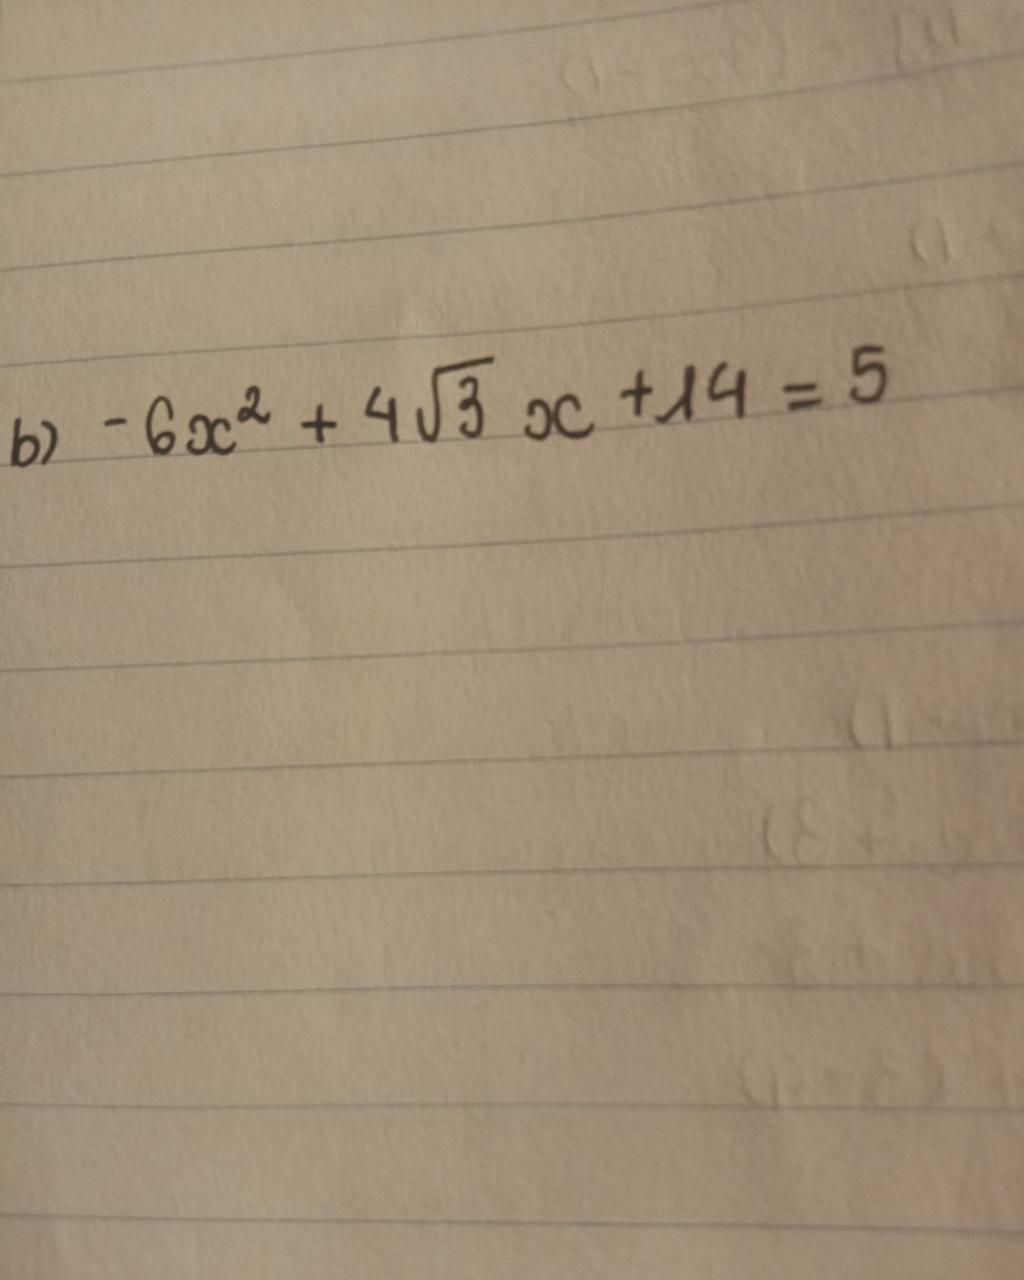 b) -6x² + 4√3 x +14 = 5